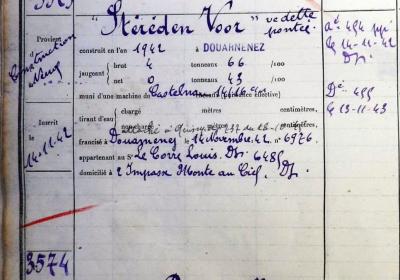 "Stéréden Voor" vedette
pontée
Provient
Construction
Neuve
construit en l'an 1942 à DOUARNENEZ
jaugeant
brut 4 tonneaux 66 /100
net 0 tonneaux 43 /100
muni d'une machine de Castelnau
tirant d'eau
chargé mètres centimètres,
mètres centimètres,
francisé à Douarnenez le 14 Novembre 42. n° 6976
appartenant au Sr Le Corre Louis. Dz 6485
domicilié à 2 Impasse Monte au Ciel. Dz.
Inscrit
14.11.42
Ct 454
le 14-11-42
Dz.
Dt 495
le 13-11-43
3574